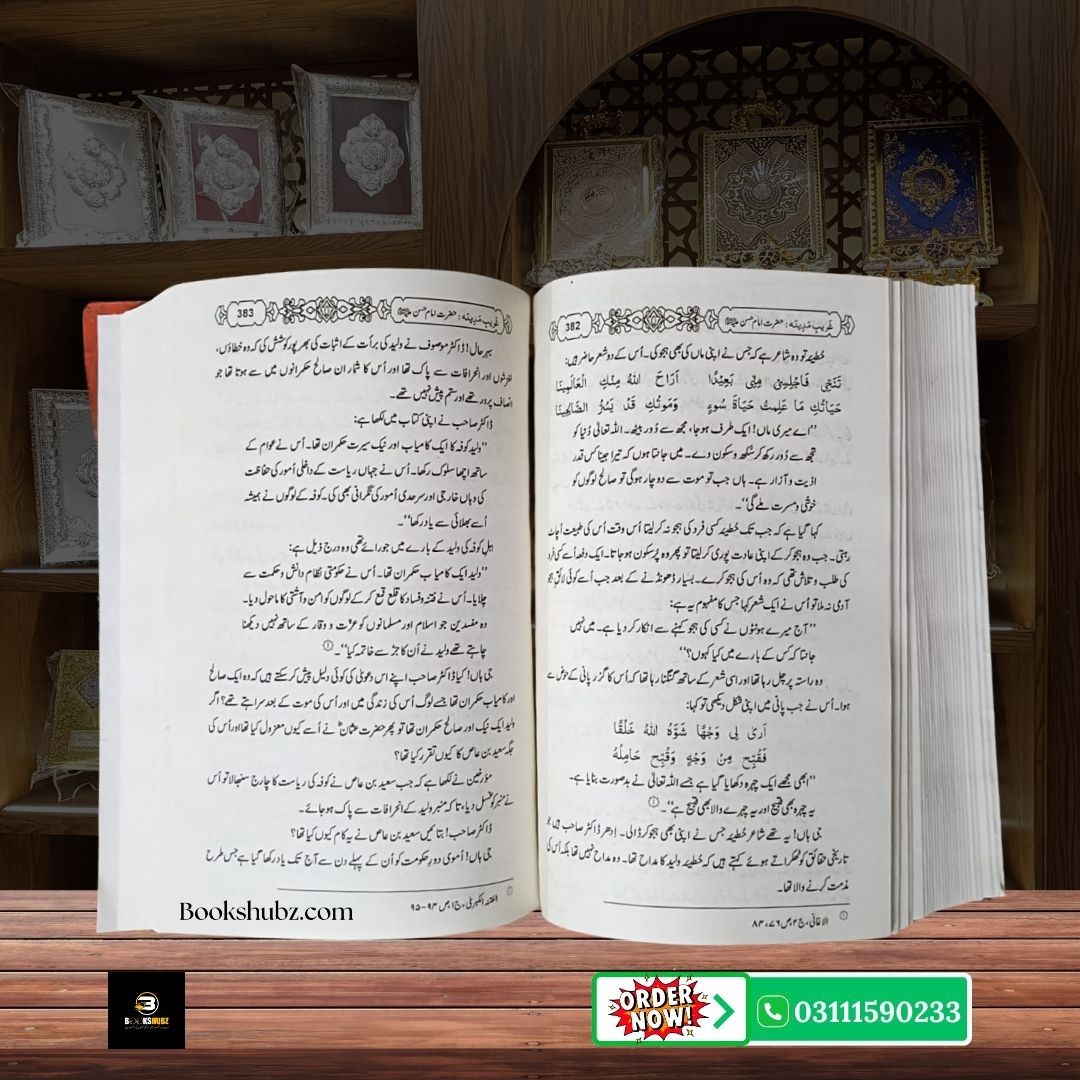 382
غریبِ مَدِینَه : حضرت امام حسن
حُطیئہ تو وہ شاعر ہے کہ جس نے اپنی ماں کی بھی ہجو کی۔ اُس کے دو شعر حاضر ہیں:
تَنَحَّی فَاجْلِسِیْ مِنِّی بَعِیْدًا اَرَاحَ اللهُ مِنْكِ الْعَالَمِینَا
حَیَاتُكِ مَا عَلِمْتُ حَیَاةُ سُوءٍ وَمَوْتُكِ قَدْ یَسُرُّ الصَّالِحِیْنَا
’’اے میری ماں! ایک طرف ہو جا، مجھ سے دُور بیٹھ۔ اللہ تعالیٰ دُنیا کو
تجھ سے دُور رکھ کر سُکھ و سکون دے۔ میں جانتا ہوں کہ تیرا جینا کس قدر
اذیت و آزار ہے۔ ہاں جب تو موت سے دوچار ہوگی تو صالح لوگوں کو
خوشی و مسرت ملے گی‘‘۔
کہا گیا ہے کہ جب تک حُطیئہ کسی فرد کی ہجو نہ کر لیتا اُس وقت اُس کی طبیعت اُچاٹ
رہتی۔ جب وہ ہجو کر کے اپنی عادت پوری کر لیتا تو پھر وہ پُرسکون ہو جاتا۔ ایک دفعہ اُسے کسی فرد
کی طلب و تلاش تھی کہ وہ اُس کی ہجو کرے۔ بسیار ڈھونڈنے کے بعد جب اُسے کوئی لائقِ ہجو
آدمی نہ ملا تو اُس نے ایک شعر کہا جس کا مفہوم یہ ہے:
’’آج میرے ہونٹوں نے کسی کی ہجو کہنے سے انکار کر دیا ہے۔ میں نہیں
جانتا کہ کس کے بارے میں کیا کہوں؟‘‘
وہ راستہ پر چل رہا تھا اور اسی شعر کے ساتھ گنگنا رہا تھا کہ اُس کا گزر پانی کے حوض سے
ہوا۔ اُس نے جب پانی میں اپنی شکل دیکھی تو کہا:
اَرٰی لِی وَجْهًا شَوَّهَ اللهُ خَلْقًا
فَقُبِّحَ مِنْ وَجْهٍ وَقُبِّحَ حَامِلُهُ
’’ابھی مجھے ایک چہرہ دکھایا گیا ہے جسے اللہ تعالیٰ نے بدصورت بنایا ہے۔
یہ چہرہ بھی قبیح اور یہ چہرے والا بھی قبیح ہے‘‘۔ ①
جی ہاں! یہ تھے شاعر حُطیئہ جس نے اپنی بھی ہجو کر ڈالی۔ اِدھر ڈاکٹر صاحب ہیں جو
تاریخی حقائق کو ٹھکراتے ہوئے کہتے ہیں کہ حُطیئہ ولید کا مداح تھا۔ وہ مداح نہیں تھا بلکہ اُس کی
مذمت کرنے والا تھا۔
① الاغانی، ج ۲، ص ۷۶، ۸۴
383
غریبِ مَدِینَه : حضرت امام حسن
بہرحال! ڈاکٹر موصوف نے ولید کی برأت کے اثبات کی بھرپور کوشش کی کہ وہ خطاؤں،
لغزشوں اور انحرافات سے پاک تھا اور اُس کا شمار ان صالح حکمرانوں میں سے ہوتا تھا جو
انصاف پرور تھے اور ستم پیش نہیں تھے۔
ڈاکٹر صاحب نے اپنی کتاب میں لکھا ہے:
’’ولید کوفہ کا ایک کامیاب اور نیک سیرت حکمران تھا۔ اُس نے عوام کے
ساتھ اچھا سلوک رکھا۔ اُس نے جہاں ریاست کے داخلی اُمور کی حفاظت
کی وہاں خارجی اور سرحدی اُمور کی نگرانی بھی کی۔ کوفہ کے لوگوں نے ہمیشہ
اُسے بھلائی سے یاد رکھا‘‘۔
اہلِ کوفہ کی ولید کے بارے میں جو رائے تھی وہ درج ذیل ہے:
’’ولید ایک کامیاب حکمران تھا۔ اُس نے حکومتی نظام دانش و حکمت سے
چلایا۔ اُس نے فتنہ و فساد کا قلع قمع کر کے لوگوں کو امن و آشتی کا ماحول دیا۔
وہ مفسدین جو اسلام اور مسلمانوں کو عزت و وقار کے ساتھ نہیں دیکھنا
چاہتے تھے ولید نے اُن کا جڑ سے خاتمہ کیا‘‘۔ ①
جی ہاں! کیا ڈاکٹر صاحب اپنے اس دعویٰ کی کوئی دلیل پیش کر سکتے ہیں کہ وہ ایک صالح
اور کامیاب حکمران تھا جسے لوگ اُس کی زندگی میں اور اُس کی موت کے بعد سراہتے تھے؟ اگر
ولید ایک نیک اور صالح حکمران تھا تو پھر حضرت عثمانؓ نے اُسے کیوں معزول کیا تھا اور اُس کی
جگہ سعید بن عاص کا کیوں تقرر کیا تھا؟
مؤرخین نے لکھا ہے کہ جب سعید بن عاص نے کوفہ کی ریاست کا چارج سنبھالا تو اُس
نے منبر کو غسل دیا، تاکہ منبر ولید کے انحرافات سے پاک ہو جائے۔
ڈاکٹر صاحب! بتائیں سعید بن عاص نے یہ کام کیوں کیا تھا؟
جی ہاں! اُموی دورِ حکومت کو اُن کے پہلے دن سے آج تک یاد رکھا گیا ہے جس طرح
① الفتنۃ الکبریٰ، ج ۱، ص ۹۴-۹۵
Bookshubz.com
BOOKSHUBZ
ORDER NOW!
03111590233